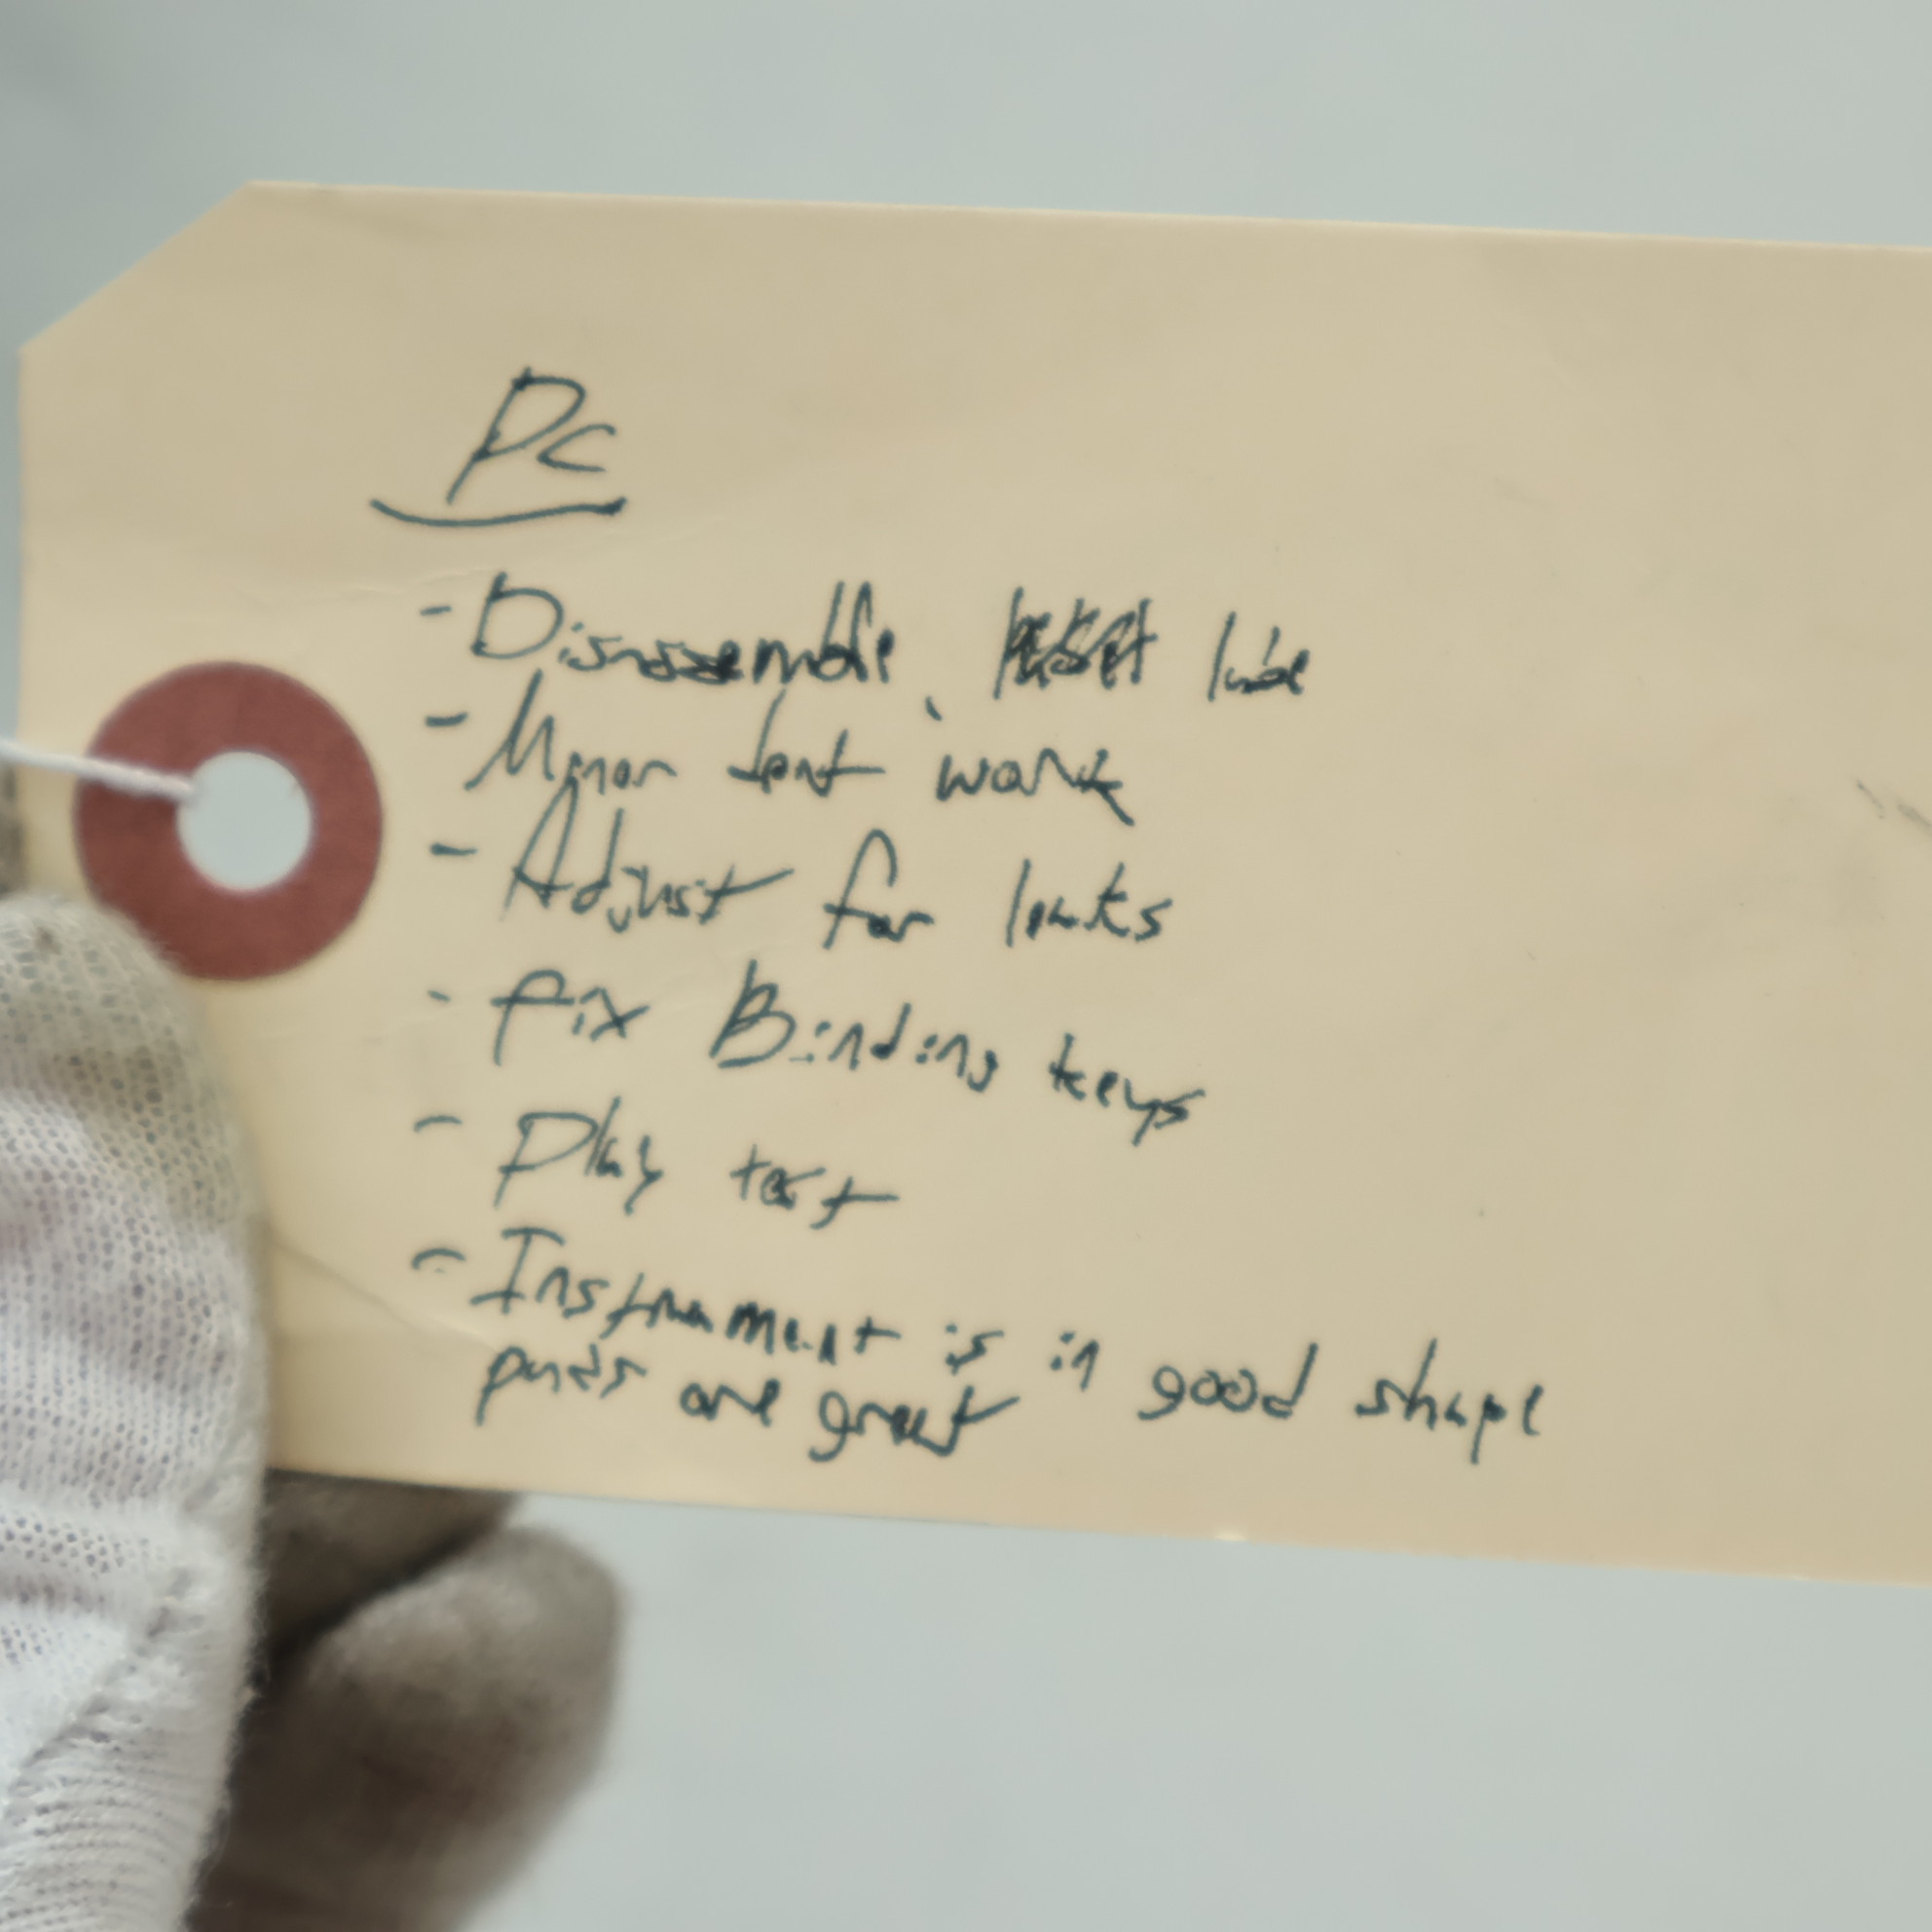 PC
- Disassemble, lube
- Minor dent work
- Adjust for leaks
- fix Binding keys
- Play test
- Instrument is in good shape
pads are great